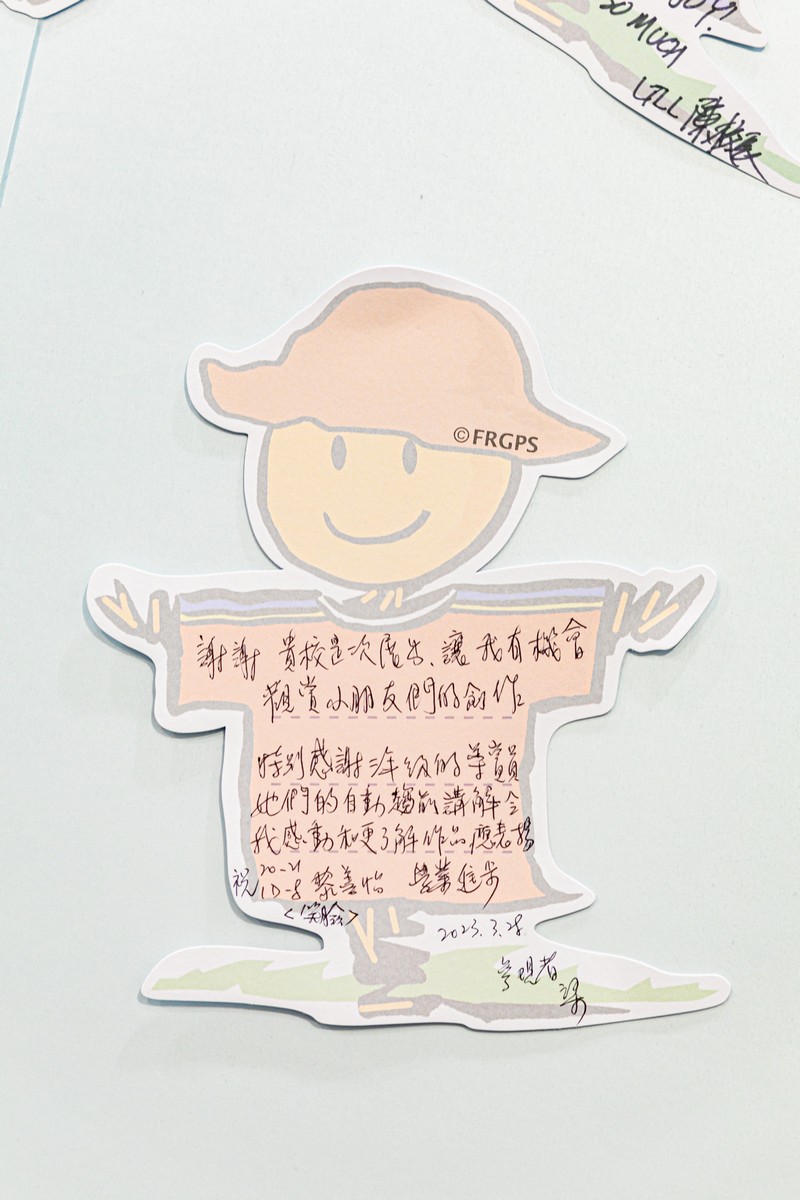 JOY!
SO MUCH
LTLL 陳校長
©FRGPS
謝謝 貴校是次展出、讓我有機會
觀賞小朋友們的創作
特別感謝六年級的學員
她們的自動趨前講解令
我感動和更了解作品應表揚
祝 20-21
1D-8 黎善怡 學業進步
<笑臉>
2023.3.28
參觀者
梁